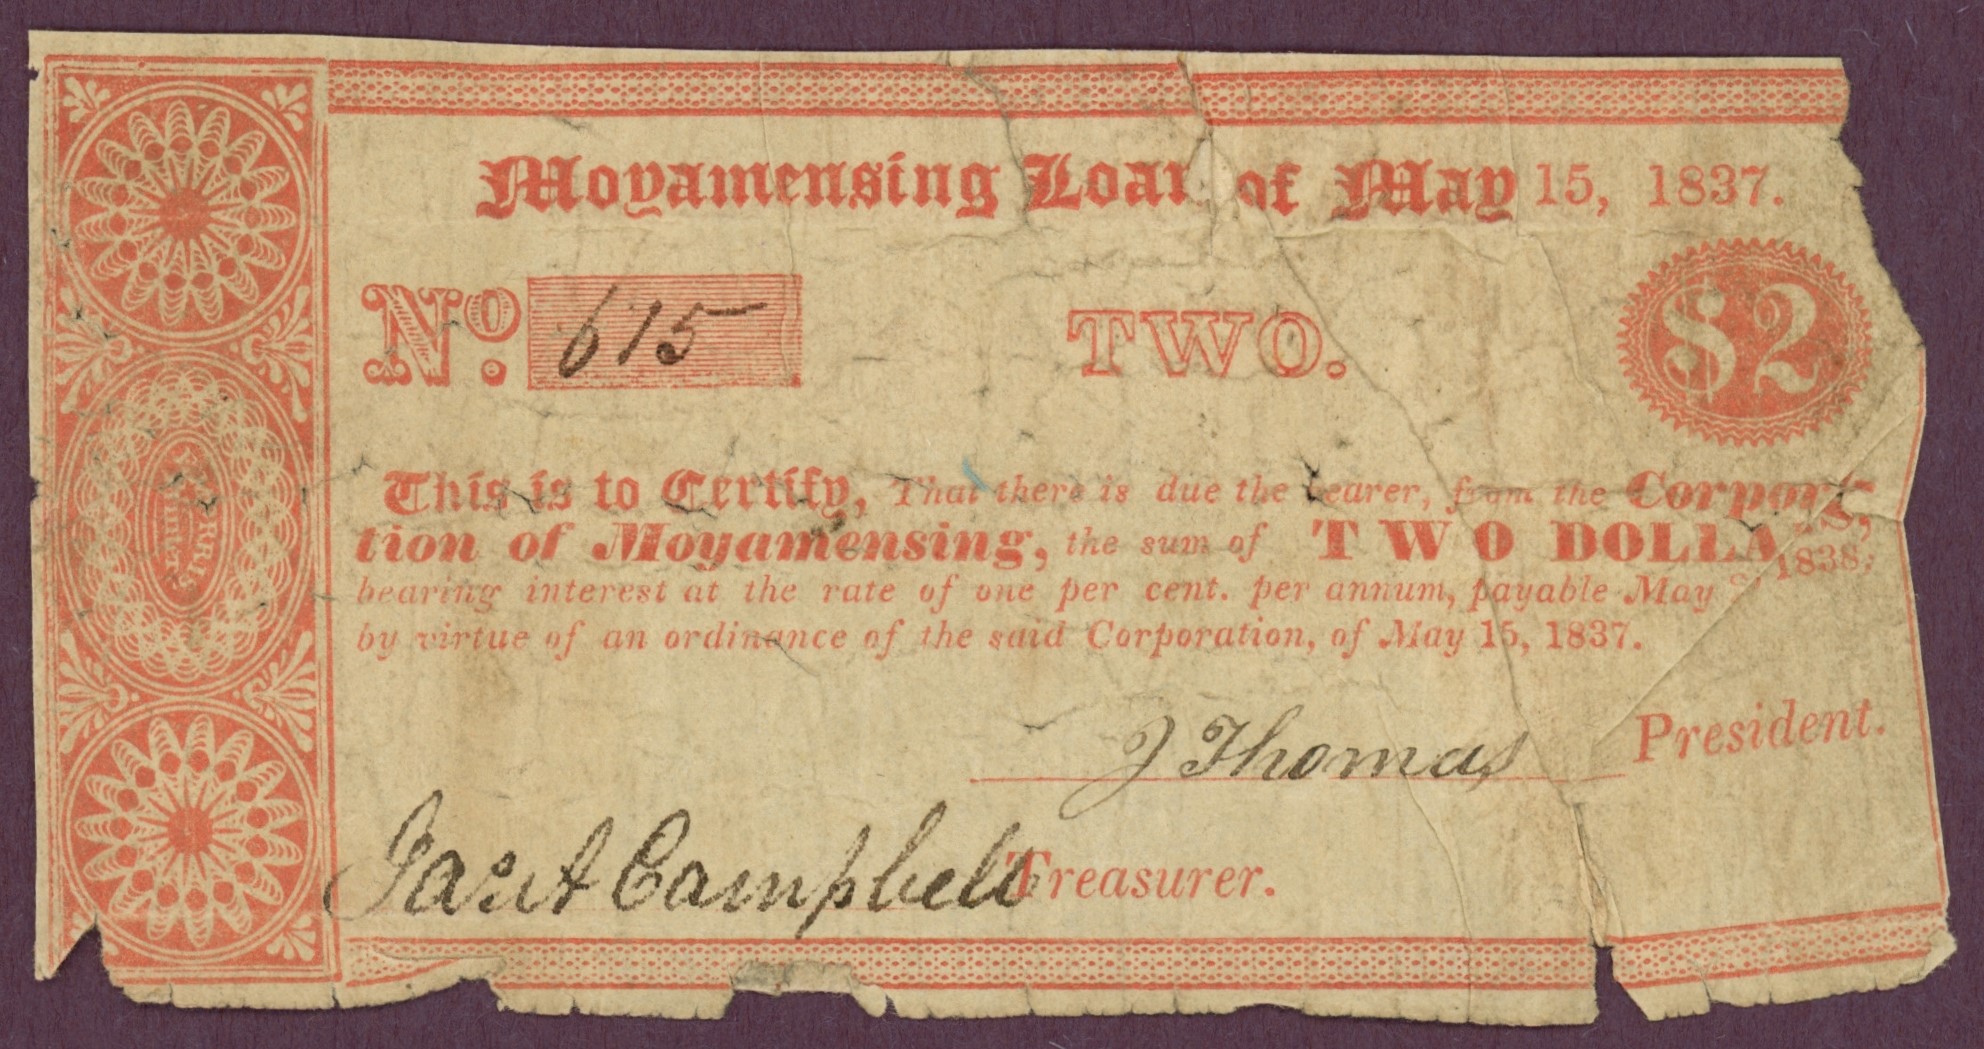 Moyamensing Loan of May 15, 1837.
No. 615 TWO. $2
This is to Certify, That there is due the bearer, from the Corpora-
tion of Moyamensing, the sum of TWO DOLLARS,
bearing interest at the rate of one per cent. per annum, payable May 1838;
by virtue of an ordinance of the said Corporation, of May 15, 1837.
J Thomas President.
Jas. A Campbell Treasurer.